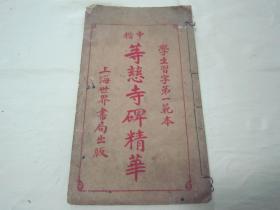 學生習字第一範本
中楷
等慈寺碑精華
上海世界書局出版